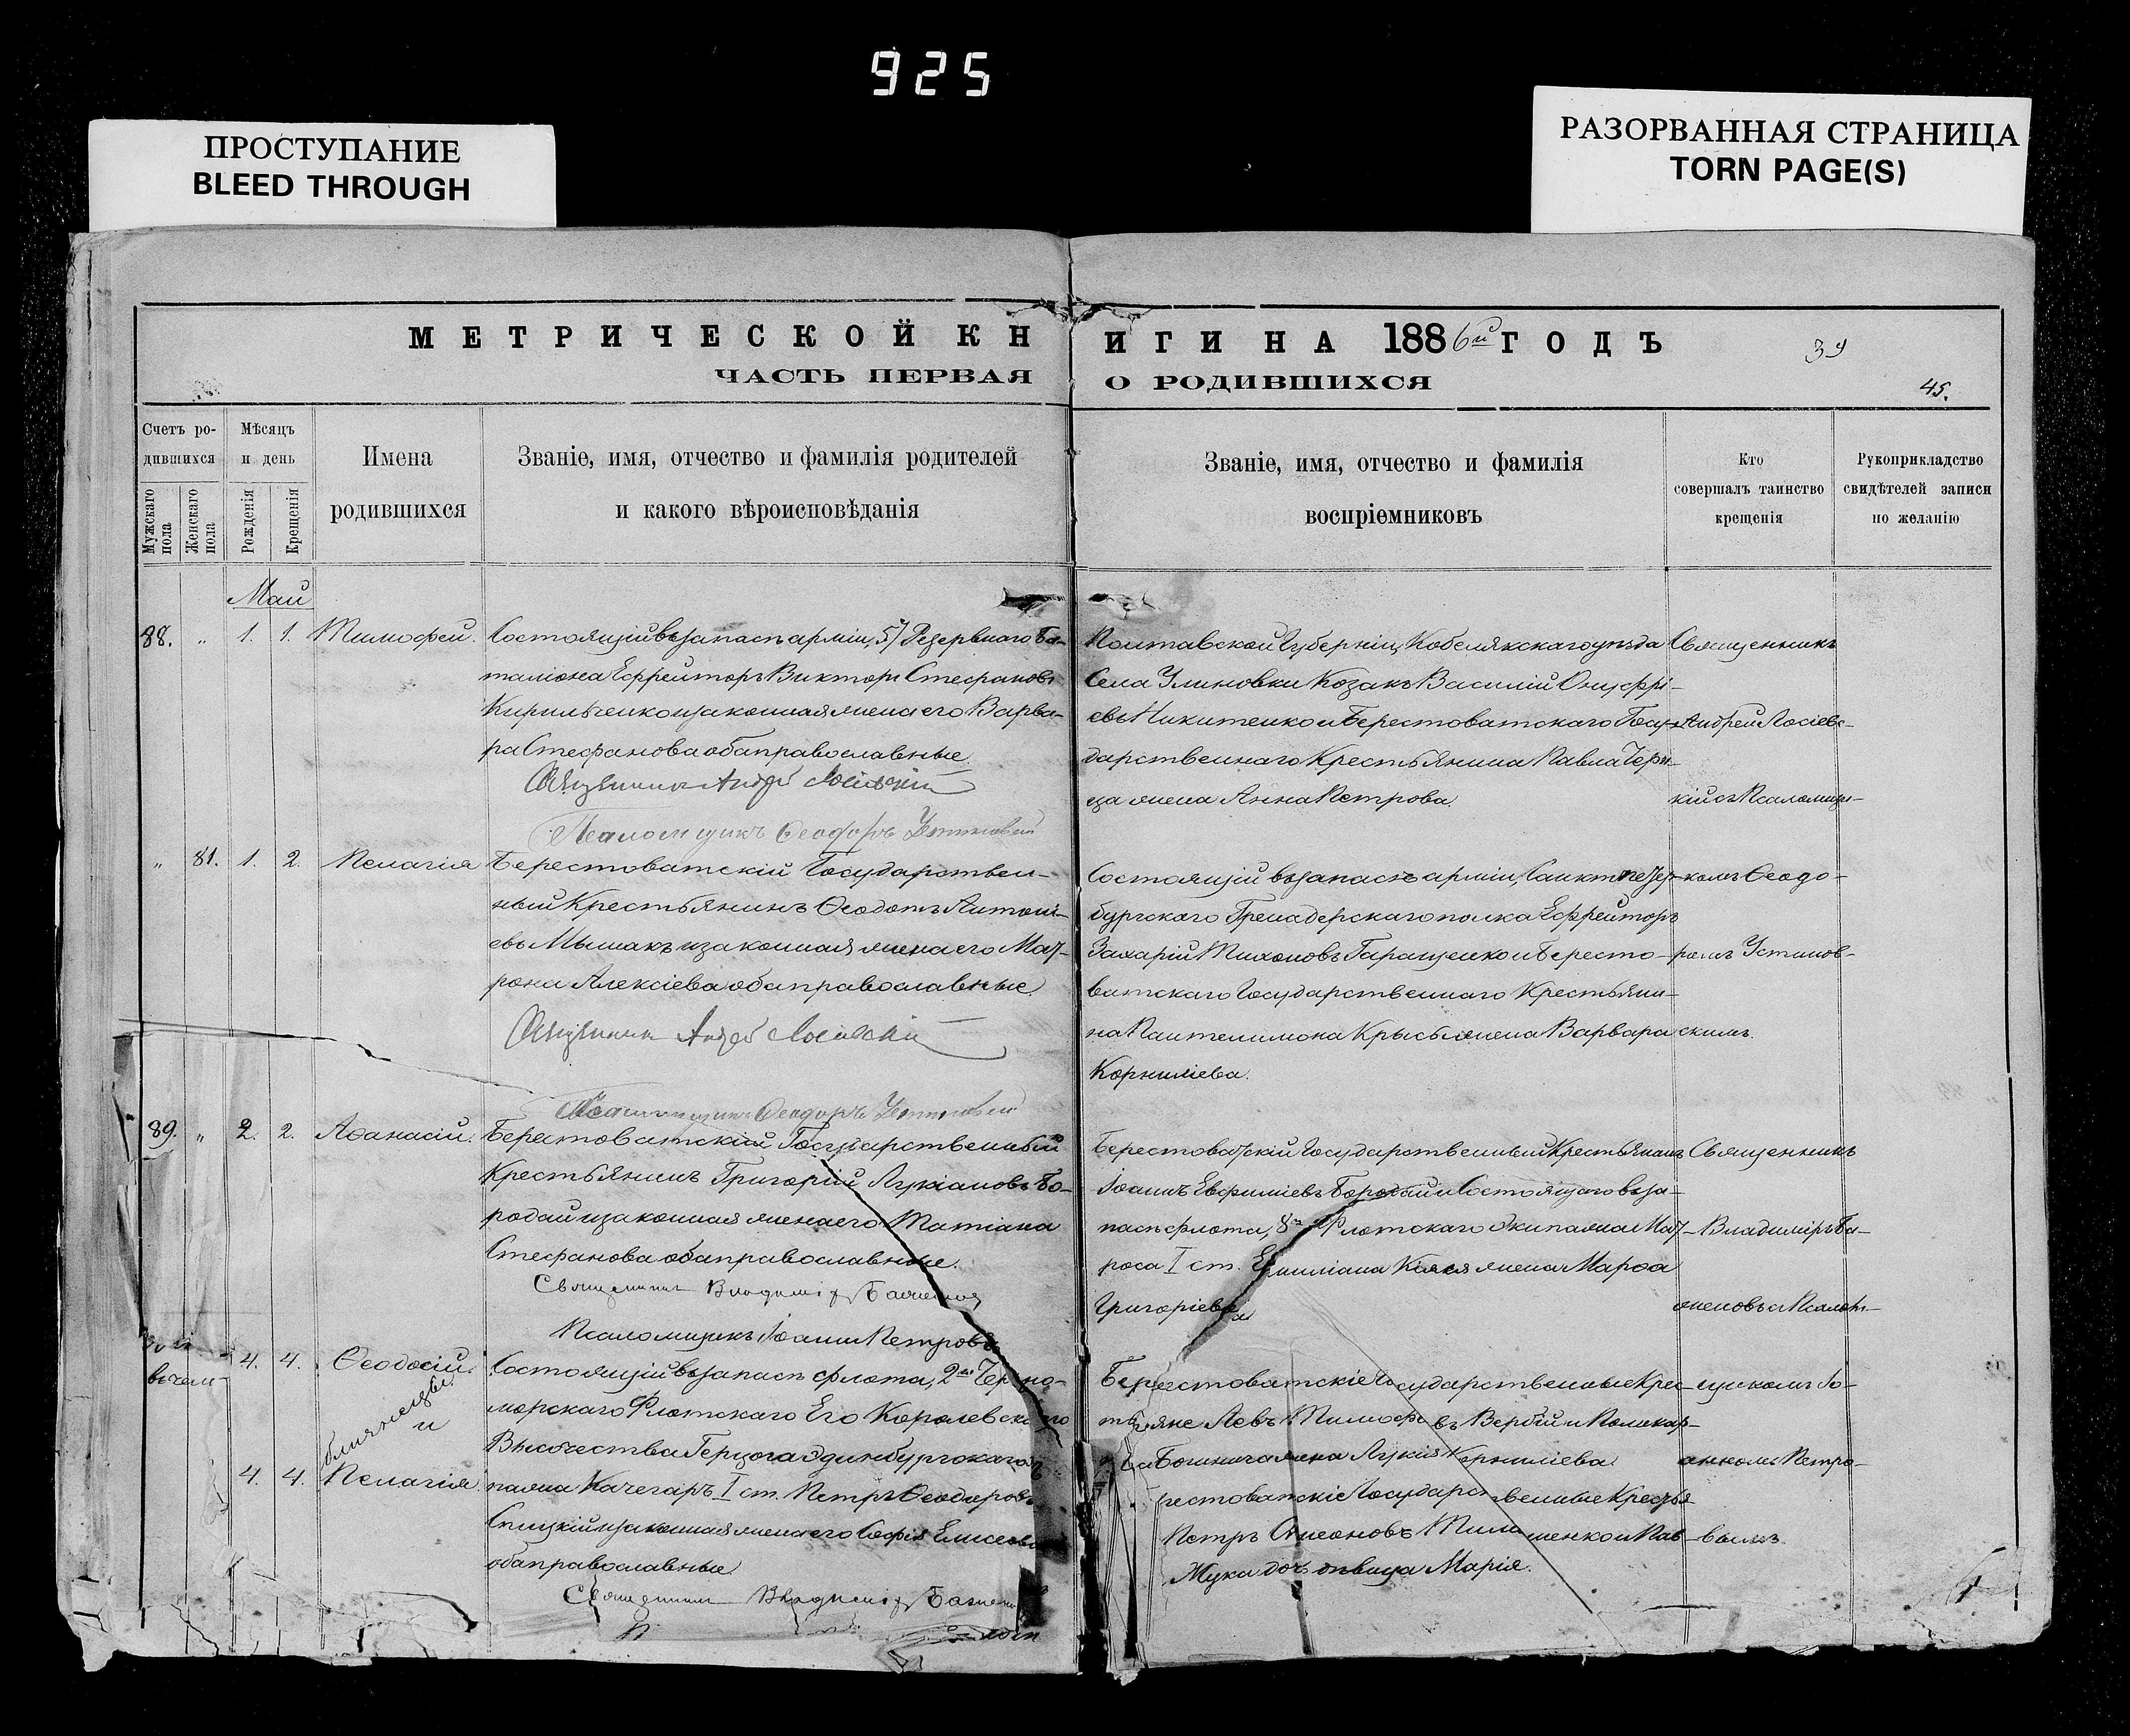 925
ПРОСТУПАНИЕ
BLEED THROUGH
РАЗОРВАННАЯ СТРАНИЦА
TORN PAGE(S)
МЕТРИЧЕСКОЙ КН
ИГИ НА 1886й ГОДЪ
39
ЧАСТЬ ПЕРВАЯ
О РОДИВШИХСЯ
45.
Счетъ ро-
дившихся
Мужскаго пола
Женскаго пола
Мѣсяцъ
и день
Рожденія
Крещенія
Имена
родившихся
Званіе, имя, отчество и фамилія родителей
и какого вѣроисповѣданія
Званіе, имя, отчество и фамилія
воспріемниковъ
Кто
совершалъ таинство
крещенія
Рукоприкладство
свидѣтелей записи
по желанію
Май
88. " 1. 1. Тимофей.
Состоящій въ запасѣ арміи, 57 Резервнаго Ба-
таліона Ефрейторъ Викторъ Стефановъ
Кирильченко и законная жена его Варва-
ра Стефанова оба православные.
Священникъ Андрей Лосіевскій
Псаломщикъ Ѳеодоръ Устиновскій
Полтавской Губерніи, Кобелякскаго уѣзда
Села Улиновки Козакъ Василій Онуфрі-
евъ Никитенко и Берестоватскаго Госу-
дарственнаго Крестьянина Павла
жена Анна Петрова.
Священникъ
Андрей Лосіевс-
кій съ Псаломщи-
комъ Ѳеодо-
ромъ Устинов-
скимъ.
" 81. 1. 2. Пелагія
Берестоватскій Государствен-
ный Крестьянинъ Ѳеодотъ Антоні-
евъ Мышакъ и законная жена его Мат-
рона Алексіева оба православные.
Священникъ Андрей Лосіевскій
Псаломщикъ Ѳеодоръ Устиновскій
Состоящій въ запасѣ арміи, Санктпетер-
бургскаго Гренадерскаго полка Ефрейторъ
Захарій Тихоновъ Гаращенко и Бересто-
ватскаго Государственнаго Крестьяни-
на Пантелимона Крысы жена Варвара
Корниліева.
89. " 2. 2. Аѳанасій.
Берестоватскій Государственный
Крестьянинъ Григорій Лукіановъ Бо-
родай и законная жена его Татіана
Стефанова оба православные.
Священникъ Владиміръ Баженовъ
Псаломщикъ Іоаннъ Петровъ
Берестоватскій Государственный Крестьянинъ
Іоаннъ Евфиміевъ Бородай и Состоящаго въ за-
пасѣ флота, 8го Флотскаго Экипажа Мат-
роса I ст. Емиліана Кіяся жена Марѳа
Григоріева
Священникъ
Владиміръ Ба-
женовъ съ Псалом-
щикомъ Іо-
анномъ Петро-
вымъ
4. 4. Ѳеодосій.
близнецы
и
4. 4. Пелагія.
Состоящій въ запасѣ флота, 2го Черно-
морскаго Флотскаго Его Королевскаго
Высочества Герцога Эдинбургскаго
пажа Кочегаръ I ст. Петръ Ѳеодоровъ
и законная жена его Софія
оба православные
Священникъ Владиміръ
Берестоватскіе Государственные Крес-
тьяне Левъ Тимофеевъ Вербій и Поликар-
жена Лукія Корниліева.
рестоватскіе Государственные Крестья
Петръ Симеоновъ и Пав
Жука дочь дѣвица Марія.